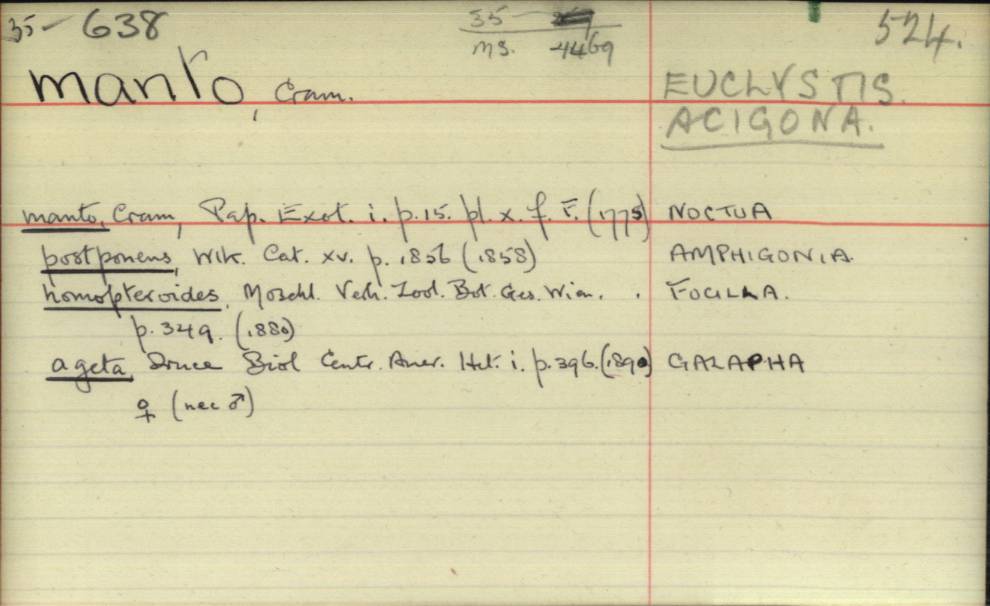 35- 638
35
ms. 4469
524.
manto, Cram.
EUCLYSTIS.
ACIGONA.
manto, Cram, Pap. Exot. i. p.15. pl. x. f. F. (1775) NOCTUA
postponens, Wlk. Cat. xv. p. 1856 (1858) AMPHIGONIA.
homopteroides, Moschl. Verh. Zool. Bot. Ges. Wien. . FOCILLA.
p. 349. (1880)
ageta, Druce Biol Centr. Amer. Het. i. p. 396. (1890) GALAPHA
♀ (nec ♂)